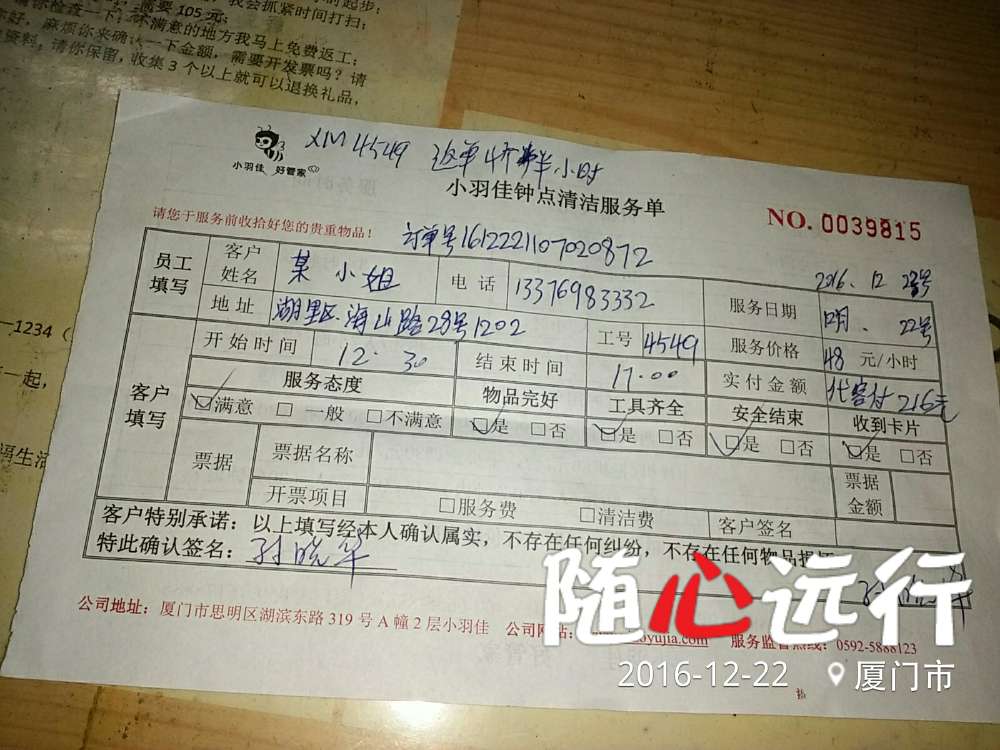 需要 105 元;
我会抓紧时间打扫;
请你检查一下;不满意的地方我马上免费返工;
好,麻烦你来确认一下金额,需要开发票吗?请
资料,请你保留,收集3个以上就可以退换礼品,
1234
一起,
福生活
小羽佳 好管家
XM4549 返单4个半小时
小羽佳钟点清洁服务单
NO. 0039815
请您于服务前收拾好您的贵重物品!
订单号1612221107020872
2016.12
员工填写 客户姓名 某小姐 电话 13376983332 服务日期 22号
地址 湖里区海山路28号1202 工号 4549 服务价格 48 元/小时
开始时间 12.30 结束时间 17.00 实付金额 代客付216元
客户填写 服务态度 物品完好 工具齐全 安全结束 收到卡片
☑满意 □一般 □不满意 ☑是 □否 ☑是 □否 ☑是 □否 ☑是 □否
票据 票据名称 票据金额
开票项目 □服务费 □清洁费 客户签名
客户特别承诺:以上填写经本人确认属实,不存在任何纠纷,不存在任何物品损坏
特此确认签名:孙晓华
公司地址:厦门市思明区湖滨东路 319 号 A 幢 2 层小羽佳 公司网站: oyujia.com 服务监督热线:0592-5888123
随心远行
2016-12-22 厦门市